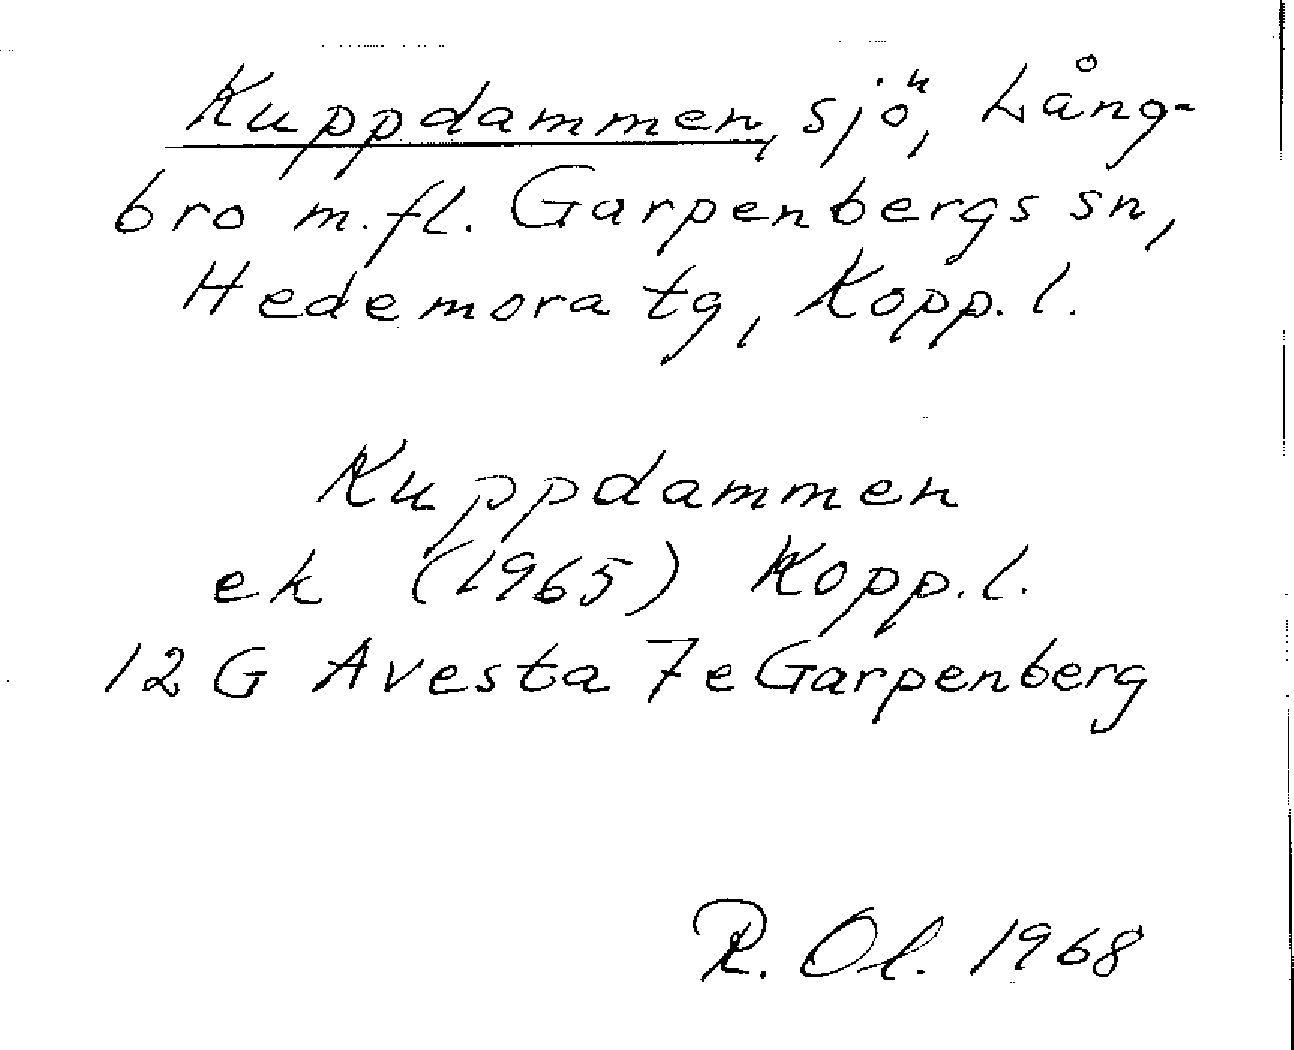 Kuppdammen, sjö, Lång-
bro m.fl. Garpenbergs sn,
Hedemora tg, Kopp. l.
Kuppdammen
ek (1965) Kopp. l.
12 G Avesta 7e Garpenberg
R. Ol. 1968